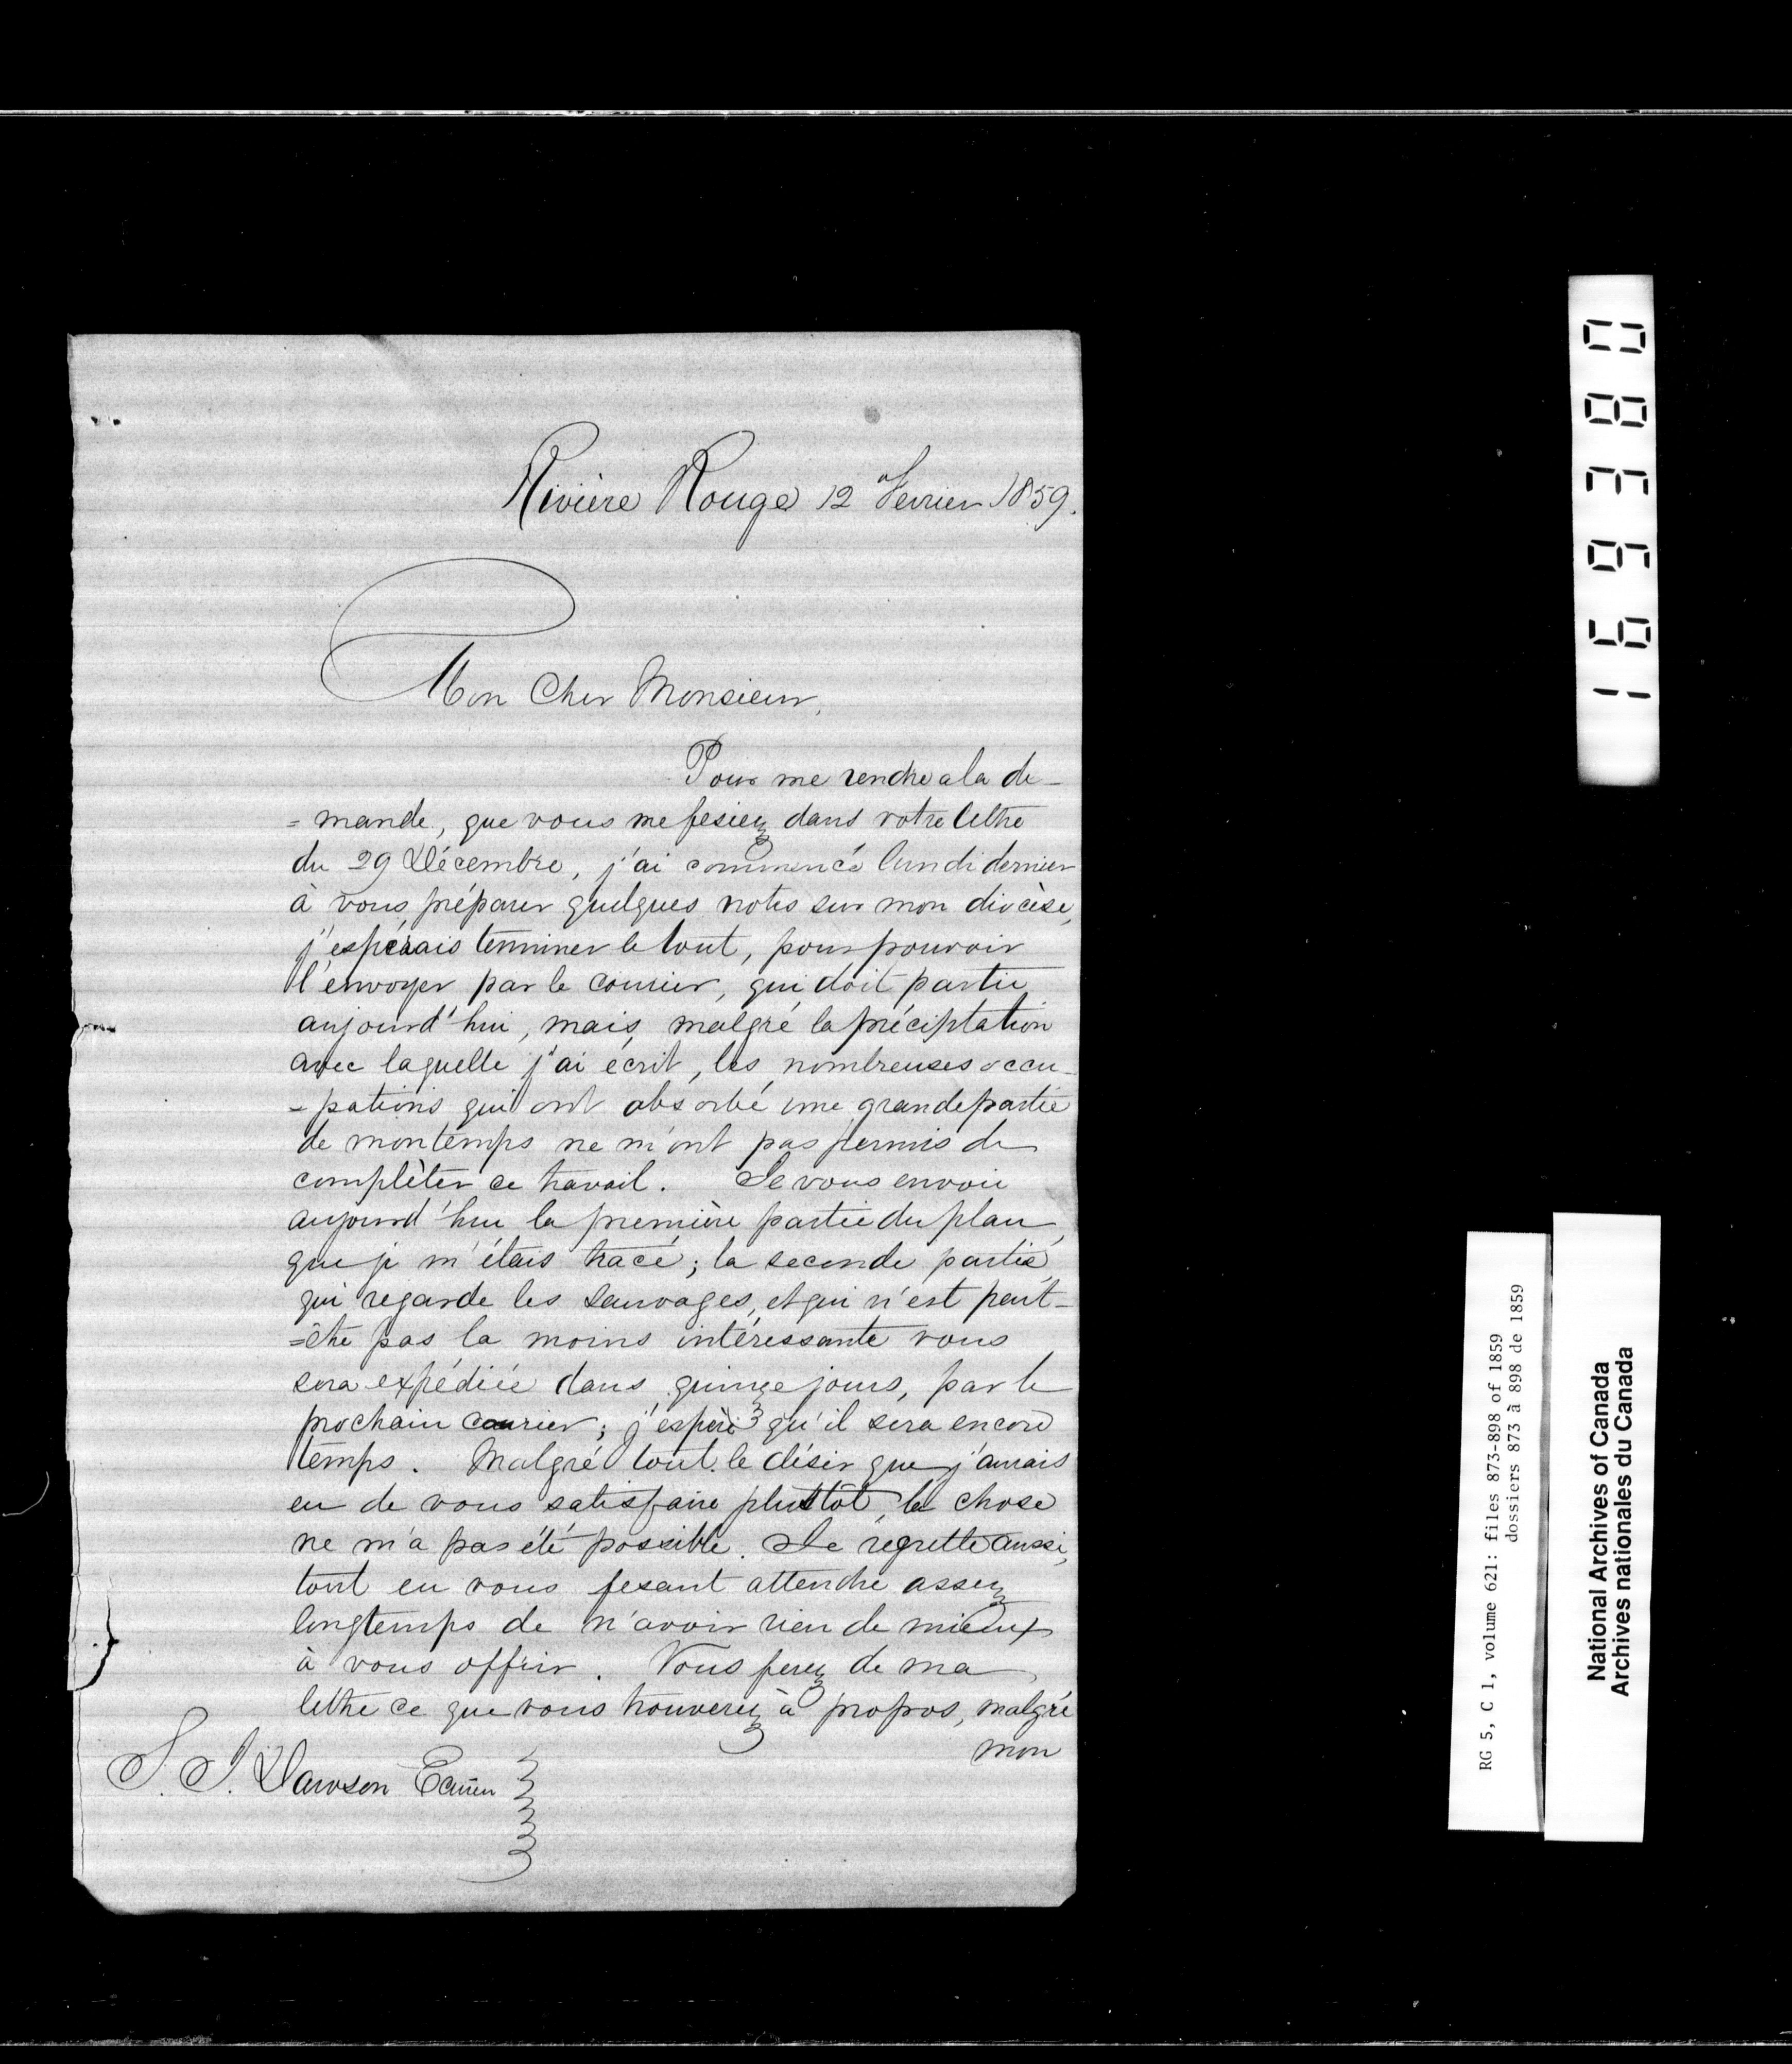 Rivière Rouge 12 Fevrier 1859.
Mon Cher Monsieur,
Pour me rendre a la de-
=mande, que vous me fesiez dans votre lettre
du 29 Décembre, j'ai commencé lundi dernier
à vous préparer quelques notes sur mon diocèse,
j'espérais terminer le tout, pour pouvoir
l'envoyer par le courier, qui doit partir
aujourd'hui, mais, malgré la préciptation
avec laquelle j'ai écrit, les nombreuses occu-
-pations qui ont absorbé une grande partie
de mon temps ne m'ont pas permis de
complèter ce travail. Je vous envoie
aujourd'hui la première partie du plan,
que je m'étais tracé; la seconde partie,
qui regarde les Sauvages, et qui n'est peut-
=être pas la moins intéressante vous
sera expédiée dans quinze jours, par le
prochain courier; j'espère qu'il sera encore
temps. Malgré tout le désir que j'aurais
eu de vous satisfaire plustôt, la chose
ne m'a pas été possible. Je regrette aussi,
tout en vous fesant attendre assez
longtemps de n'avoir rien de mieux
à vous offrir. Vous ferez de ma
lettre ce que vous trouverez à propos, malgré
mon
S. J. Dawson Ecuier
169380
RG 5, C 1, volume 621: files 873-898 of 1859
dossiers 873 à 898 de 1859
National Archives of Canada
Archives nationales du Canada